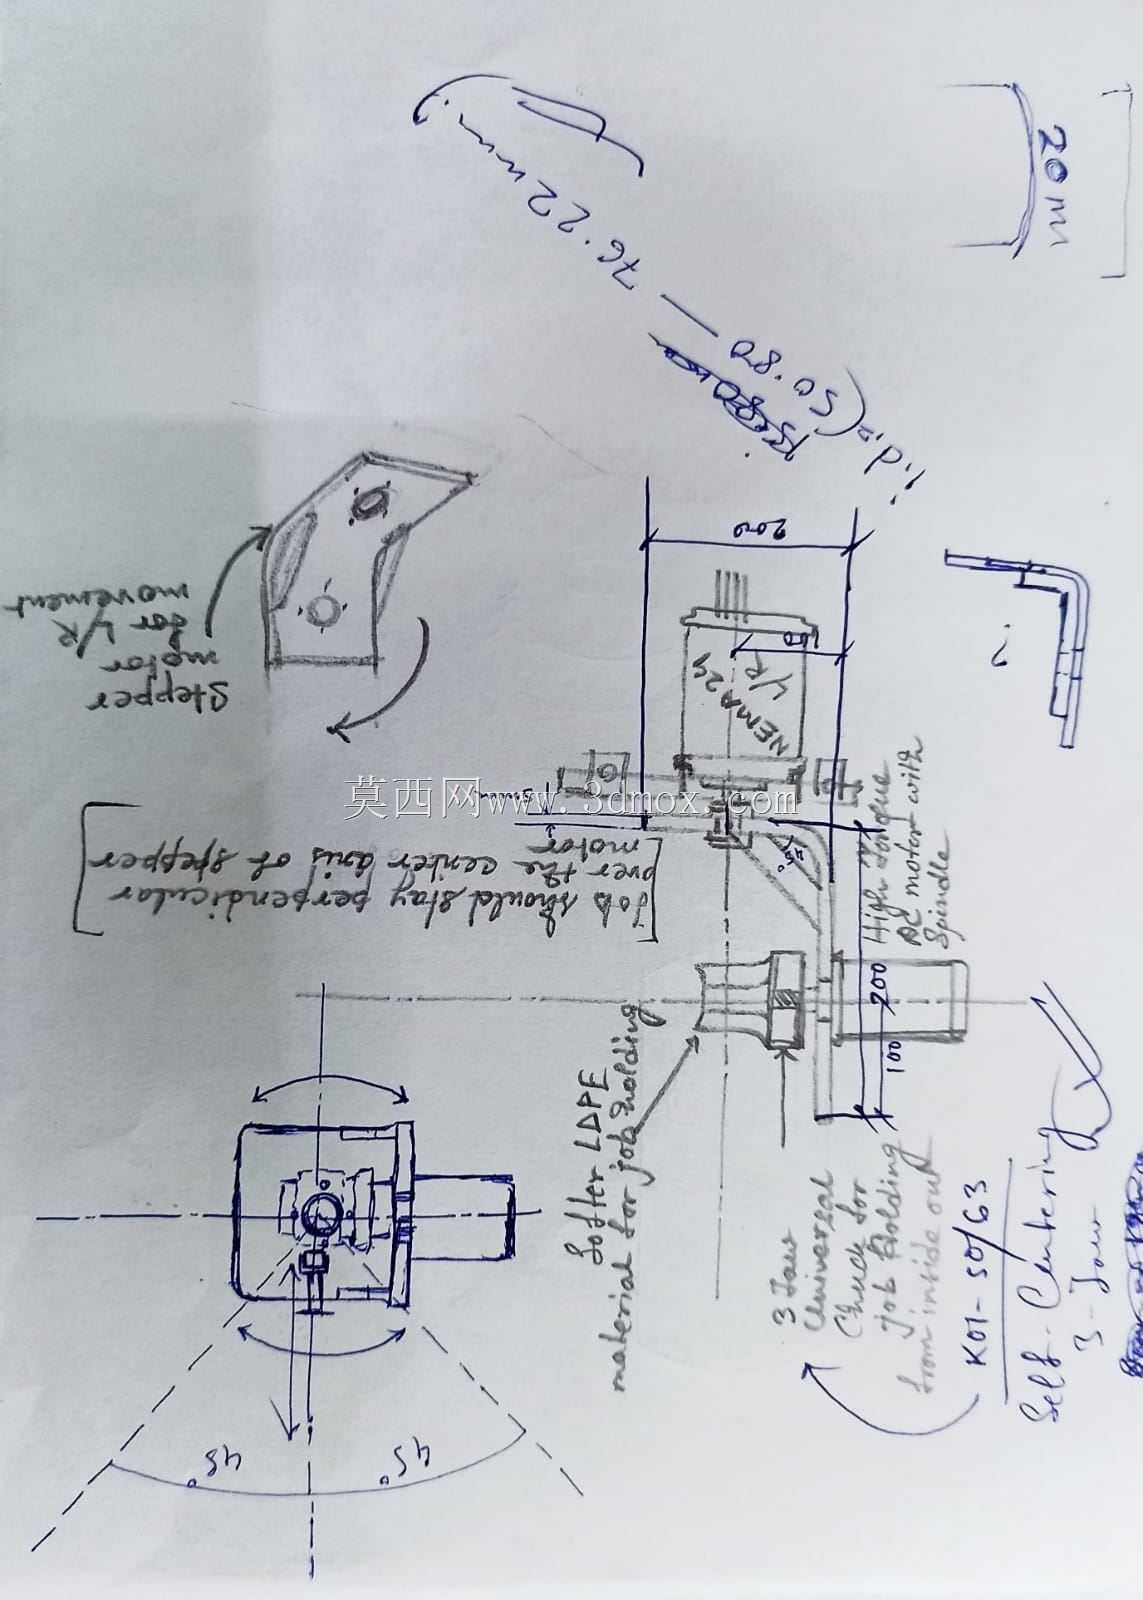 20m
76.22 mm
i.d. (50.80 —
200
100
NEMA 24
L/R
Stepper
motor
for L/R
movement
?
莫西网www.3dmox.com
[Job should stay perpendicular
over the center axis of stepper
motor]
45°
High torque
DC motor with
Spindle
200
100
Softer LDPE
material for job holding
3 Jaw
Universal
Chuck for
job Holding
from inside out
K01-50/63
Self-Centering
3-Jaw
45°
45°